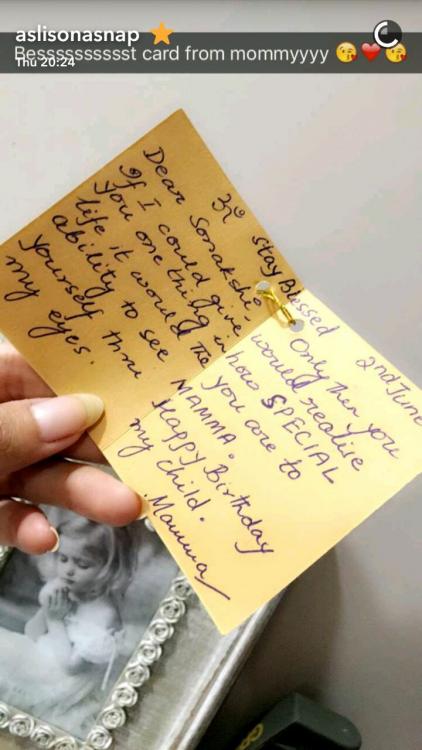 aslisonasnap ⭐
Bessssssssssst card from mommyyyy 😘❤️😘
Thu 20:24
ॐ
Dear Sonakshi,
If I could give
you one thing in
life it would be
ability to see
yourself thru
my eyes.
Stay Blessed
2nd June
Only then you
would realise
how SPECIAL
you are to
MAMMA.
Happy Birthday
my child.
Mamma